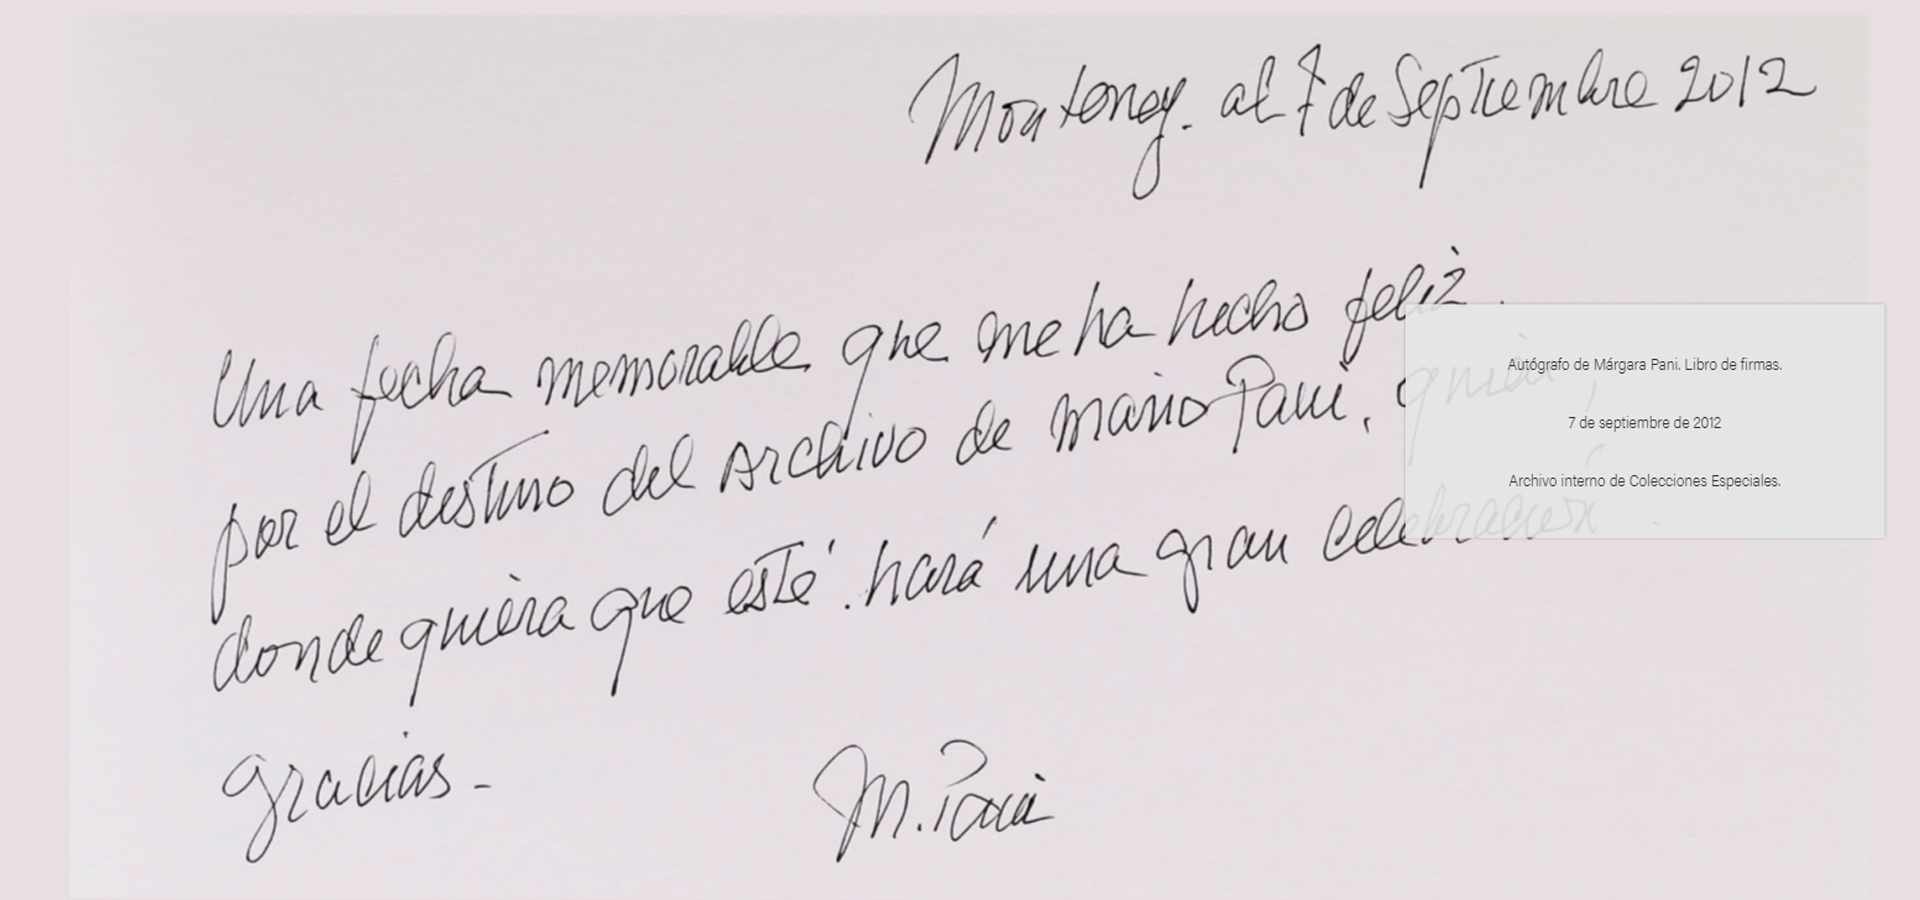 Monterrey. al 7 de Septiembre 2012
Una fecha memorable que me ha hecho feliz.
por el destino del Archivo de Mario Pani, quién,
donde quiera que esté. hará una gran celebración.
gracias-
M. Pani
Autógrafo de Márgara Pani. Libro de firmas.
7 de septiembre de 2012
Archivo interno de Colecciones Especiales.